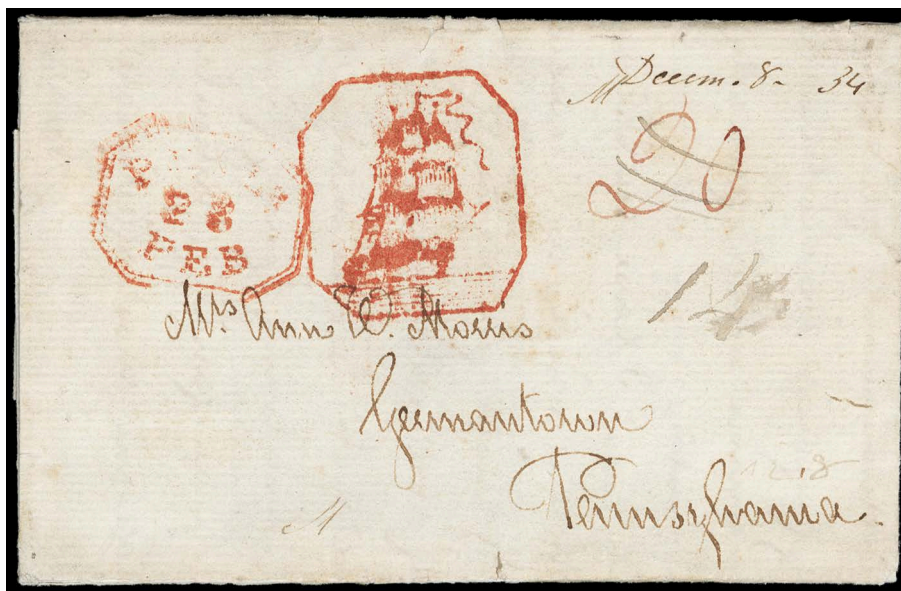 Decem. 8. 34
20
28
FEB
14
Mrs Ann W. Morris
Germantown
12.8
Pennsylvania.
M